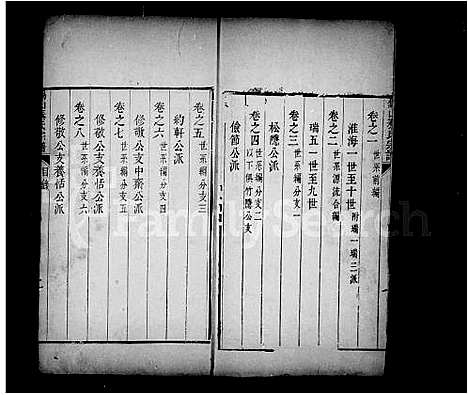 卷之一 世系前編
淮海一世至十世 附瑞一瑞二派
卷之二 世系源流合編
瑞五一世至九世
卷之三 世系編分支一
松隱公派
卷之四 世系編分支二 以下俱竹隱公支
儉節公派
卷之五 世系編分支三
約軒公派
卷之六 世系編分支四
修敬公支中齋公派
卷之七 世系編分支五
修敬公支養恬公派
卷之八 世系編分支六
修敬公支養恬公派
FamilySearch